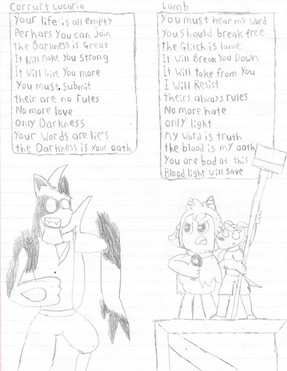 Corruft Lucario
Your life is all empty
Perhaps You can Join
the Darkness is Great
It Will Make You strong
It Will Give You more
You must submit
their are no rules
No more love
only Darkness
Your Words are lies
the Darkness is Your oath
Lamb
You must hear my Word
You should break free
the Glitch is lame
It Will Break You Down
It Will take From You
I Will Resist
theirs always rules
No more hate
only light
My Word is truth
the blood is my oath
You are bad at this
Blood light will save